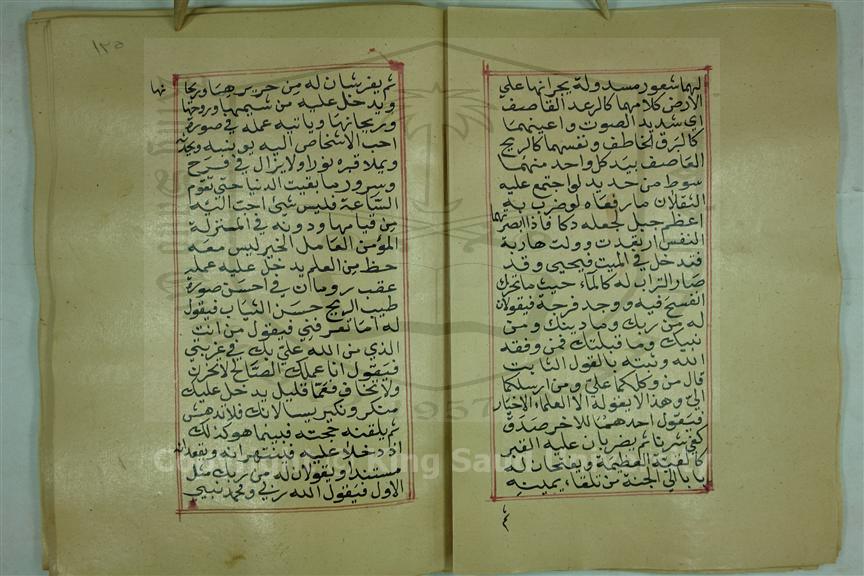 لهما شعور مسدولة يجرانها على
الارض كلامهما كالرعد القاصف
اي شديد الصوت واعينهما
كالبرق الخاطف ونفسهما كالريح
العاصف بيد كل واحد منهما
سوط من حديد لو اجتمع عليه
الثقلان ما رفعاه لو ضرب به
اعظم جبل لجعله دكا فاذا ابصرتهما
النفس ارتعدت وولت هاربة
فتدخل في الميت فيحيى وقد
صار التراب له كالماء حيث ما تحرك
انفسح فيه ووجد فرجة فيقولان
له من ربك وما دينك ومن
نبيك وما قبلتك فمن وفقه
الله وثبته بالقول الثابت
قال من وكلكما علي ومن ارسلكما
الي وهذا لا يقوله الا العلماء الاخيار
فيقول احدهما للاخر صدق
كفي شرنا ثم يضربان عليه القبر
كالقبة العظيمة ويفتحان له
بابا الى الجنة من تلقاء يمينه
١٢٥
ثم يفرشان له من حريرها وريحانها
ويدخل عليه من نسيمها وروحها
وريحانها وياتيه عمله في صورة
احب الاشخاص اليه يونسه ويحدثه
ويملا قبره نورا ولا يزال في فرح
وسرور ما بقيت الدنيا حتى تقوم
الساعة فليس شئ احب اليه
من قيامها ودونه في المنزلة
المؤمن العامل الخير ليس معه
حظ من العلم يدخل عليه عمله
عقب رومان في احسن صورة
طيب الريح حسن الثياب فيقول
له اما تعرفني فيقول من انت
الذي من الله علي بك في غربتي
فيقول انا عملك الصالح لا تحزن
ولا تخاف فعما قليل يدخل عليك
منكر ونكير يسالانك فلا تدهش
ثم يلقنه حجته فبينما هو كذلك
اذ دخلا عليه فينتهرانه ويقعدانه
مستندا ويقولان له من ربك مثل
الاول فيقول الله ربي ومحمد نبيي